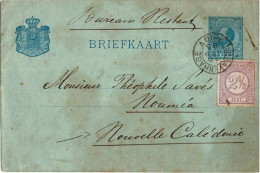 Bureau Restant
BRIEFKAART
Monsieur Théophile Savé
Nouméa
Nouvelle Calédonie
2½